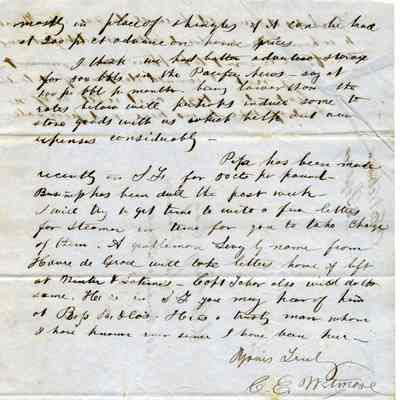 mostly in place of shingles if it can be had
at 200 pr ct advance on home prices
I think we had better advertise storage
for 900 bbls in the Pacific News – say at
pr bbl pr month being lower than the
rates below will perhaps induce some to
store goods with us which help out our
expenses considerably –
has been made
recently in S.F. for 80 cts pr pound
Business has been dull the past week
I will try to get time to write a few letters
for Steamer in time for you to take charge
of them. A gentleman by name from
Havre de Grace will take letters home if left
at – Capt also will do the
same. He is in S F you may hear of him
at . He is a trusty man whom
I have known ever since I have been here –
Yours Truly
C. E. Wetmore